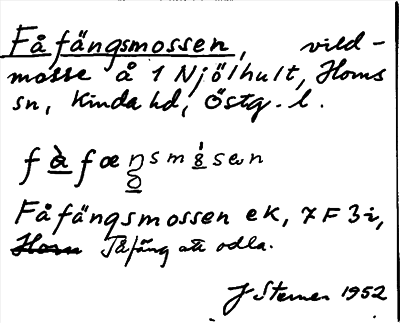 Fåfängsmossen, vild-
mosse å 1 Njölhult, Horns
sn, Kinda hd, Östg. l.
Fåfängsmossen ek, 7F3i,
Fåfäng att odla.
J Sterner 1952